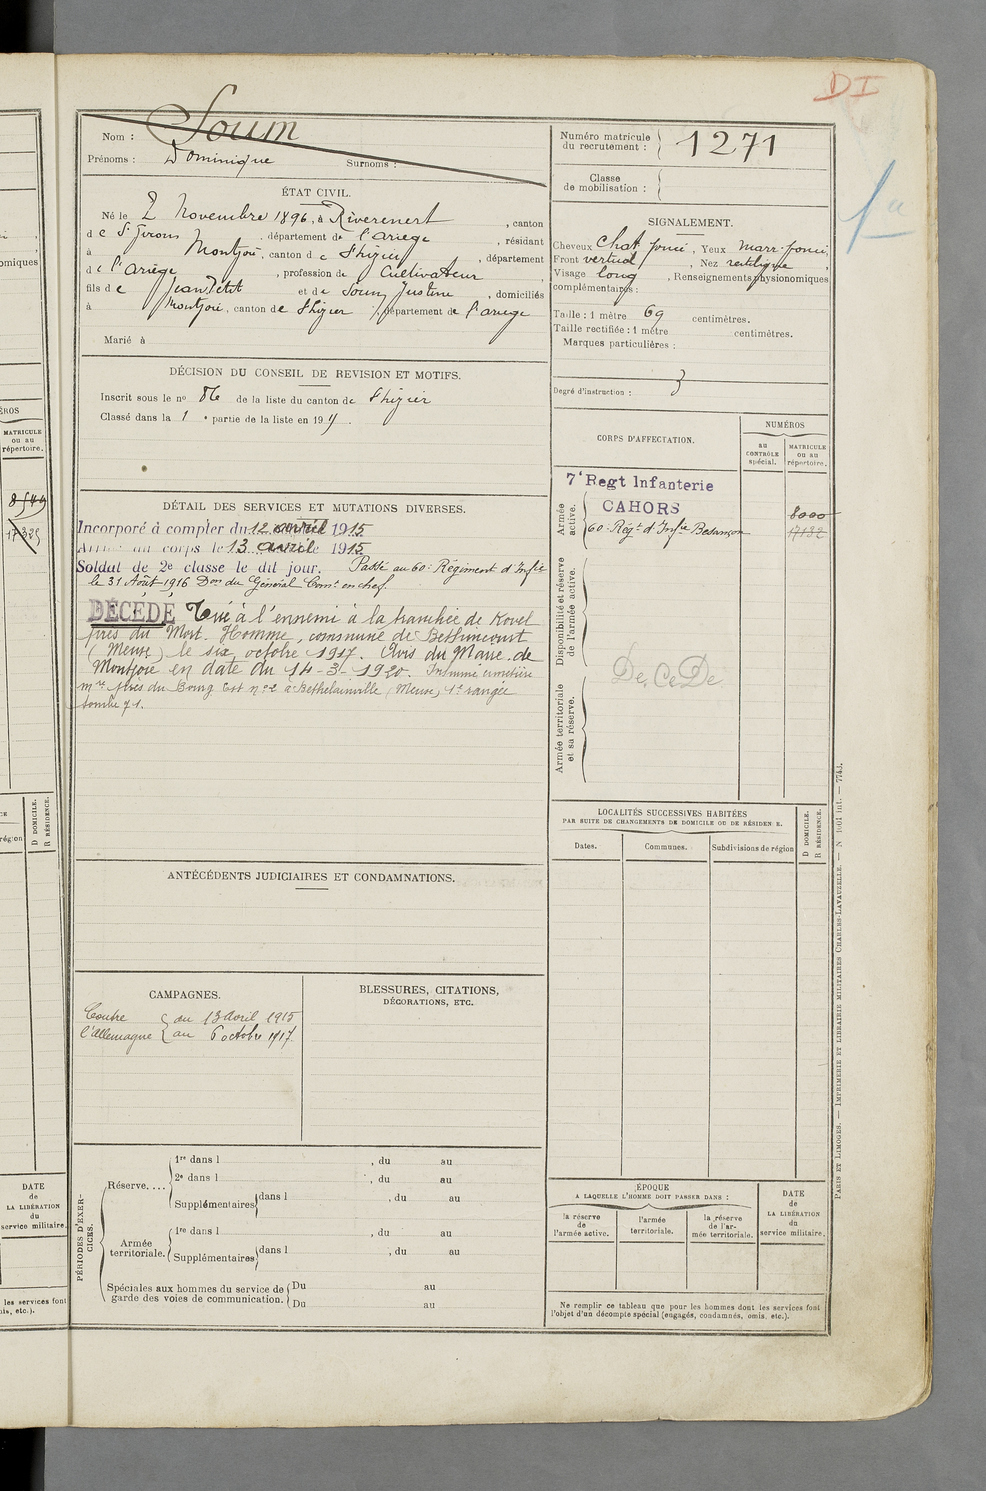 DI
Nom : Soum
Prénoms : Dominique Surnoms :
Numéro matricule du recrutement : 1271
Classe de mobilisation :
ÉTAT CIVIL.
Né le 2 Novembre 1896, à Riverenert, canton
de St Girons, département de l'Ariège, résidant
à Montjoie, canton de St Lizier, département
de l'Ariège, profession de Cultivateur
fils de Jean Petit et de Soum Justine, domiciliés
à Montjoie, canton de St Lizier, département de l'Ariège
Marié à
SIGNALEMENT.
Cheveux chat. foncé, Yeux marr. foncé,
Front vertical, Nez rectiligne,
Visage long, Renseignements physionomiques
complémentaires :
Taille : 1 mètre 69 centimètres.
Taille rectifiée : 1 mètre centimètres.
Marques particulières :
Degré d'instruction : 3
DÉCISION DU CONSEIL DE REVISION ET MOTIFS.
Inscrit sous le no 86 de la liste du canton de St Lizier
Classé dans la 1e partie de la liste en 191
CORPS D'AFFECTATION.
NUMÉROS
au CONTRÔLE spécial.
MATRICULE ou au répertoire.
Armée active.
7e Regt Infanterie
CAHORS 8000
60e Régt d'Infie Besançon 17132
Disponibilité et réserve de l'armée active.
DeCeDe
Armée territoriale et sa réserve.
DÉTAIL DES SERVICES ET MUTATIONS DIVERSES.
Incorporé à compter du 12 avril 1915
Arrivé au corps le 13 avril 1915
Soldat de 2e classe le dit jour. Passé au 60e Régiment d'Infie
le 31 Août 1916 Don du Général Comt en chef.
DÉCÉDÉ Tué à l'ennemi à la tranchée de Kovel
près du Mort-Homme, commune de Bethincourt
(Meuse) le six octobre 1917. Avis du Maire de
Montjoie en date du 14-3-1920. Inhumé cimetière
mre près du Bourg Est no 2 à Bethelainville (Meuse) 1e rangée
tombe 71.
LOCALITÉS SUCCESSIVES HABITÉES
PAR SUITE DE CHANGEMENTS DE DOMICILE OU DE RÉSIDENCE.
Dates. Communes. Subdivisions de région
D DOMICILE.
R RÉSIDENCE.
ANTÉCÉDENTS JUDICIAIRES ET CONDAMNATIONS.
CAMPAGNES.
Contre l'Allemagne { du 13 avril 1915
au 6 octobre 1917.
BLESSURES, CITATIONS,
DÉCORATIONS, ETC.
PÉRIODES D'EXERCICES.
Réserve....
1re dans l , du au
2e dans l , du au
Supplémentaires dans l , du au
Armée territoriale.
1re dans l , du au
Supplémentaires dans l , du au
Spéciales aux hommes du service de garde des voies de communication. Du au
Du au
ÉPOQUE
A LAQUELLE L'HOMME DOIT PASSER DANS :
la réserve de l'armée active.
l'armée territoriale.
la réserve de l'armée territoriale.
DATE de LA LIBÉRATION du service militaire.
Ne remplir ce tableau que pour les hommes dont les services font
l'objet d'un décompte spécial (engagés, condamnés, omis, etc.).
PARIS ET LIMOGES. — IMPRIMERIE ET LIBRAIRIE MILITAIRES CHARLES-LAVAUZELLE.
omiques
MATRICULE ou au répertoire.
8549
17325
D DOMICILE.
R RÉSIDENCE.
DATE
de
LA LIBÉRATION
du
service militaire.
les services font